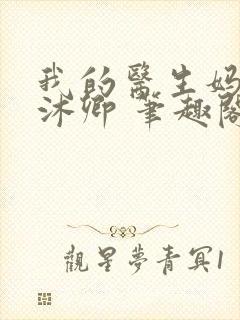 我的醫生媽
沐卿 筆趣閣
觀星夢青冥1